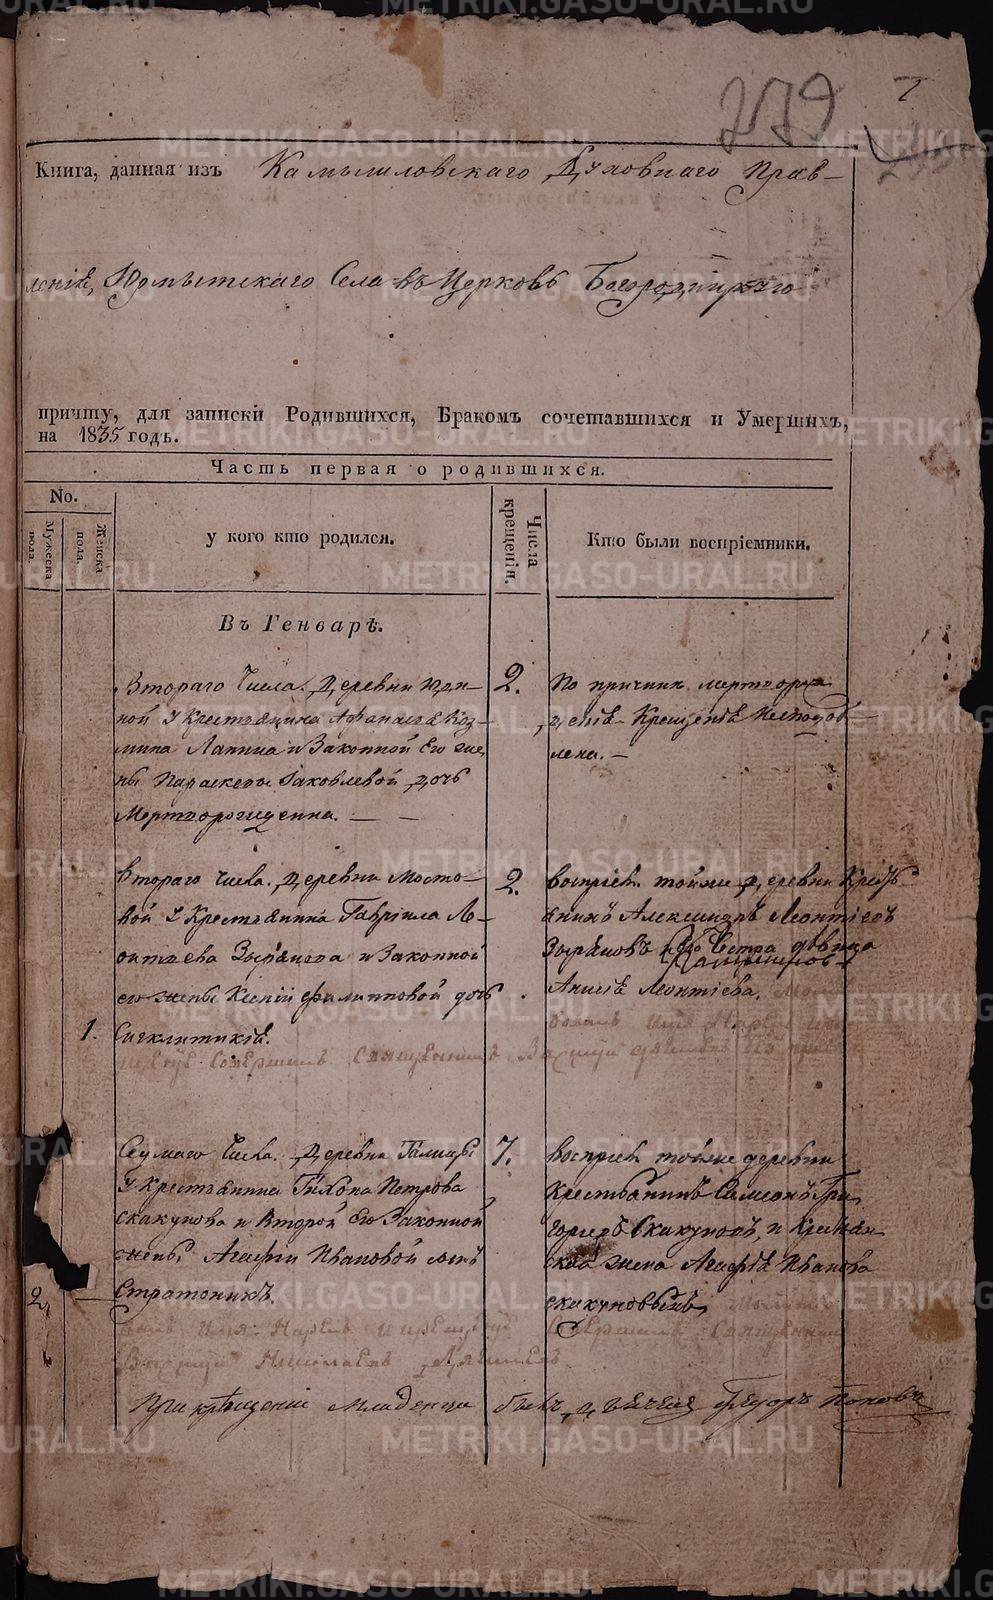 279
7
Книга, данная изъ Камышловскаго Духовнаго Прав-
ленія, Юрмытскаго Села въ Церковь Богородицкаго
причту, для записки Родившихся, Бракомъ сочетавшихся и Умершихъ,
на 1835 годъ.
Часть первая о родившихся.
No.
Мужеска пола.
Женска пола.
у кого кто родился.
Числа крещенія.
Кто были воспріемники.
Въ Генварѣ.
Втораго Числа. Деревни Юди-
ной У Крестьянина Афанасія Коз-
мина Лапина и Законной Его же-
ны Параскевы Іаковлевой дочь
Мертворожденна. —
2.
По причинѣ мертворож
денія Крещеніе Несподоб
лена. —
Втораго числа. Деревни Мосто-
вой У Крестьянина Гавріила Ле-
онтьева Зырянова и Законной
его жены Ксеніи Филипповой дочь
1. Сигклитикія.
2.
воспріем. тойже деревни Кресть
янинъ Александръ Леонтіевъ
Зыряновъ и Его Сестра дѣвица
Анисія Леонтіева.
имя Нарекъ
Совершилъ Священникъ
Седмаго Числа. Деревни Галицы
У Крестьянина Тихона Петрова
Скакунова и Второй Его Законной
жены Агафіи Ивановой сынъ
2. — Стратоникъ.
7.
воспріем. тойже деревни
Крестьянинъ Симеонъ Гри
горьевъ Скакуновъ, и Крестьян
ская жена Агафія Иванова
Скакуновыхъ
имя Нарекъ и
Совершилъ Священникъ
Николаевъ
При крѣщеніи Младенца былъ дьячекъ Ѳедоръ Поповъ
METRIKI.GASO-URAL.RU